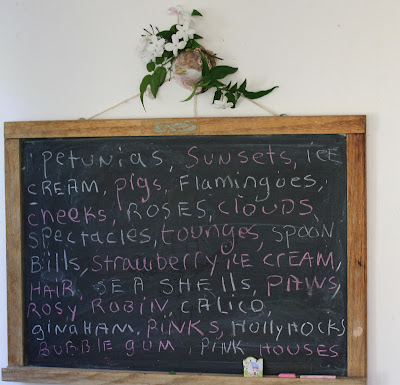 petunias, Sunsets, ICE
CREAM, pigs, Flamingoes,
cheeks, ROSES, CLOUDS,
Spectacles, tounges, spoon
Bills, strawberry ICE CREAM,
HAIR, SEA SHElls, PAWS,
ROSY ROBIN, CALICO,
GINGHAM, PINKS, Hollyhocks
BUBBLE GUM, PINK HOUSES